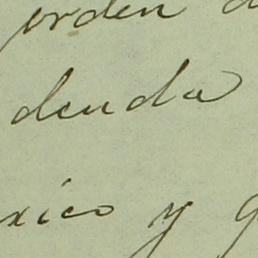 orden d
deuda
xico y g